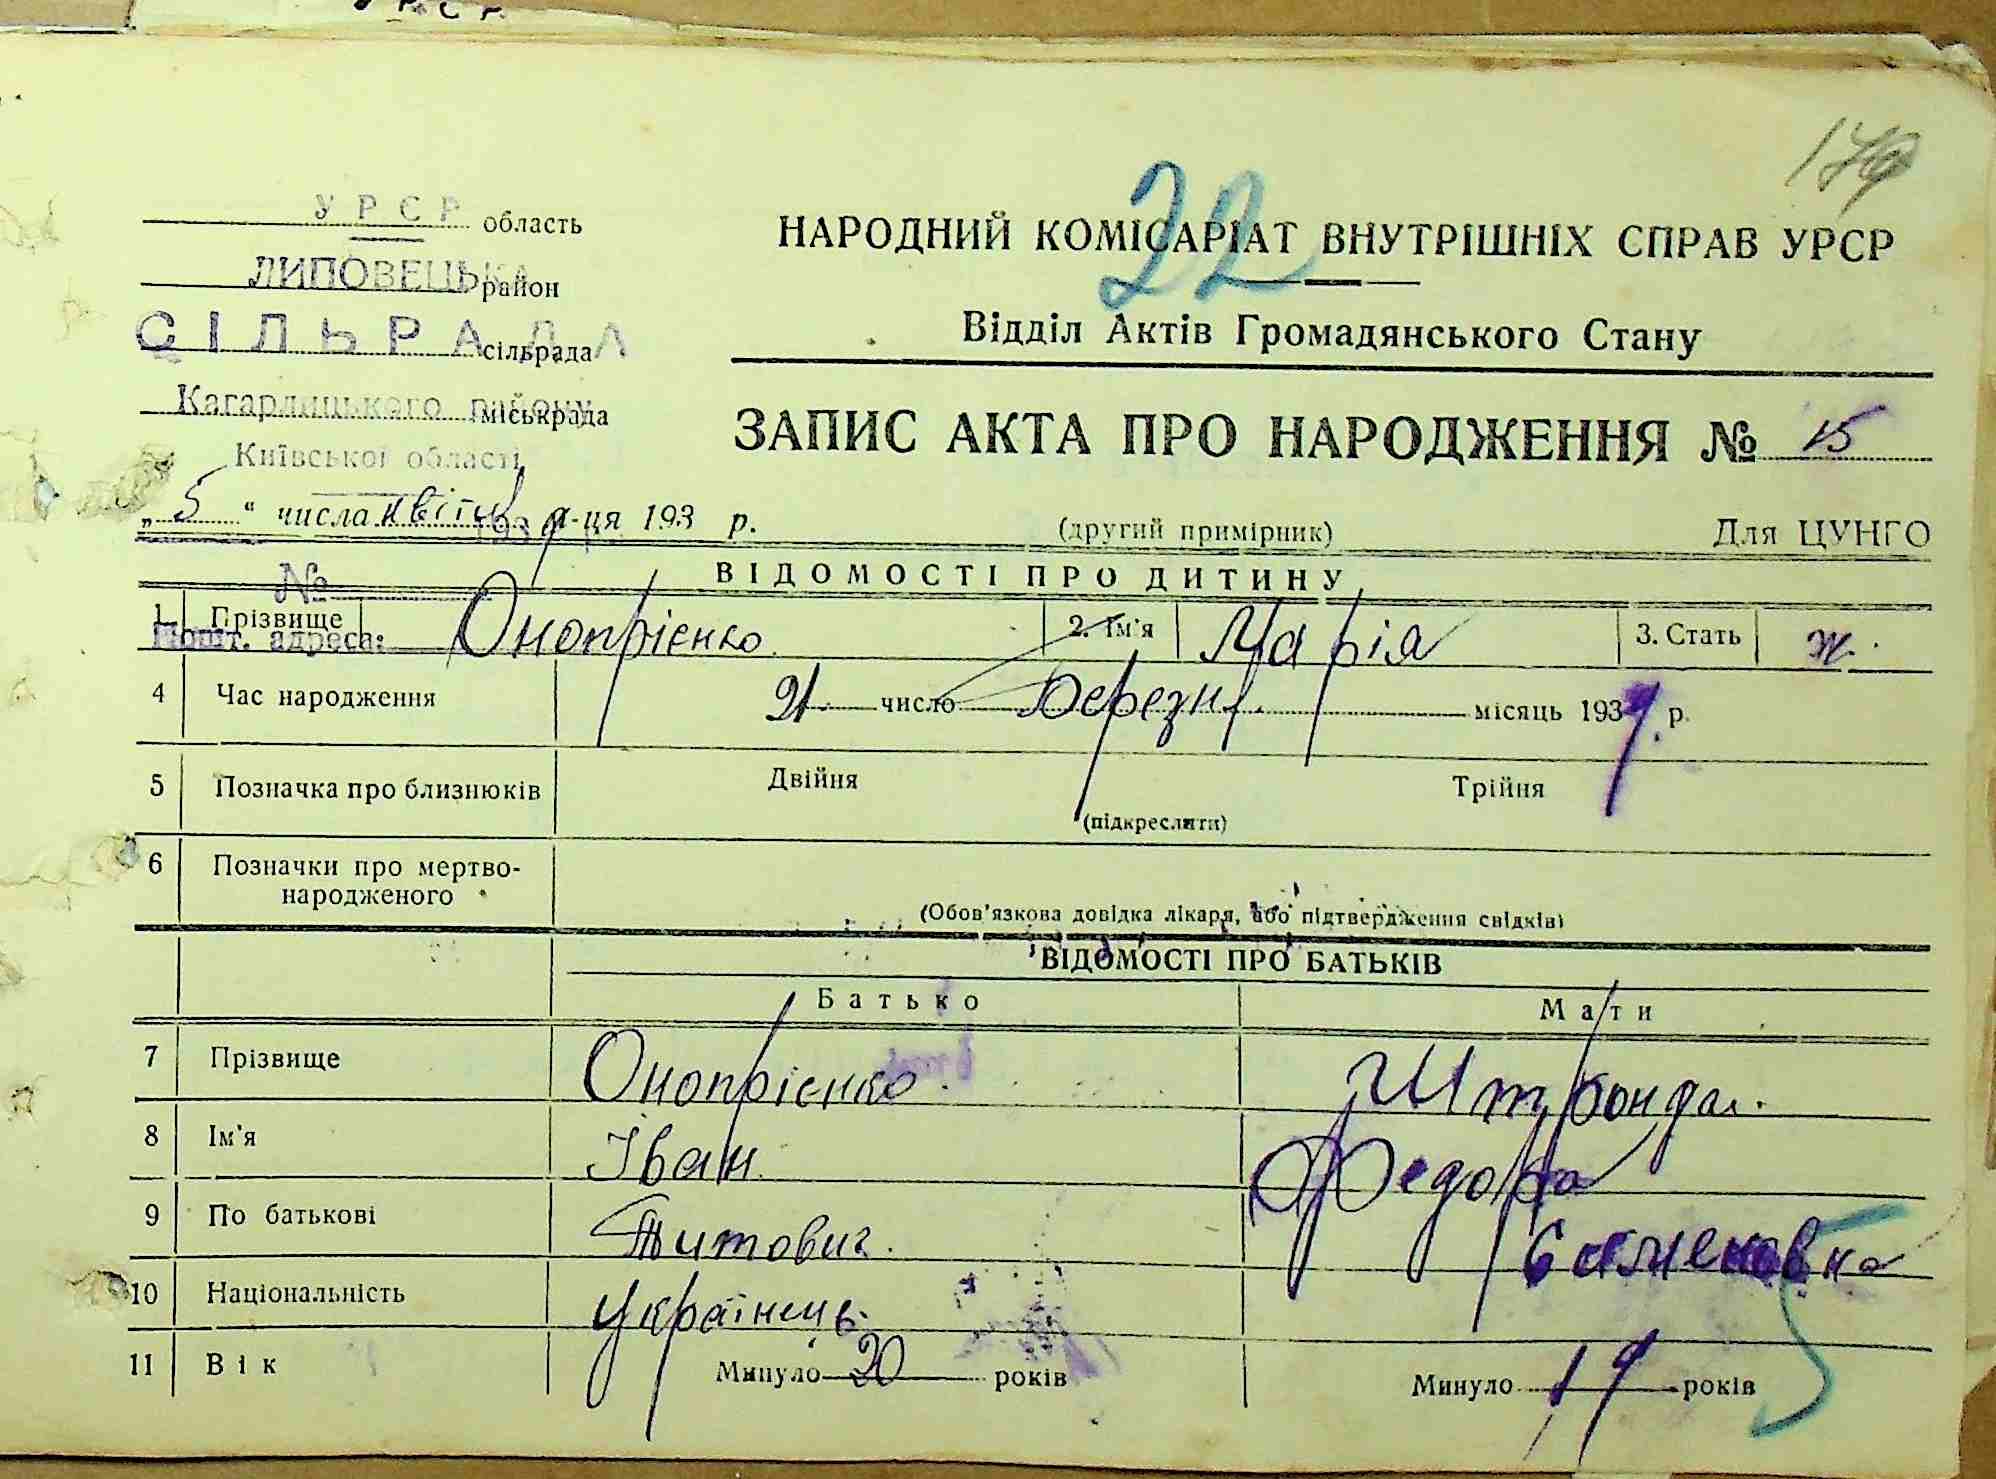 179
22
УРСР область
НАРОДНИЙ КОМІСАРІАТ ВНУТРІШНІХ СПРАВ УРСР
ЛИПОВЕЦЬКА район
Відділ Актів Громадянського Стану
СІЛЬРАДА сільрада
Кагарлицького району міськрада
ЗАПИС АКТА ПРО НАРОДЖЕННЯ № 15
Київської області
„ 5 “ числа квітня м-ця 193 р.
(другий примірник) Для ЦУНГО
№
ВІДОМОСТІ ПРО ДИТИНУ
1 Прізвище Онопрієнко 2. Ім'я Марія 3. Стать ж.
Пошт. адреса:
4 Час народження 21 число березня місяць 1939 р.
5 Позначка про близнюків Двійня Трійня
(підкреслити)
6 Позначки про мертво-
народженого
(Обов'язкова довідка лікаря, або підтвердження свідків)
ВІДОМОСТІ ПРО БАТЬКІВ
Батько Мати
7 Прізвище Онопрієнко Штронда
8 Ім'я Іван Федора
9 По батькові Титович Семеновна
10 Національність Українець
11 Вік Минуло 20 років Минуло 19 років